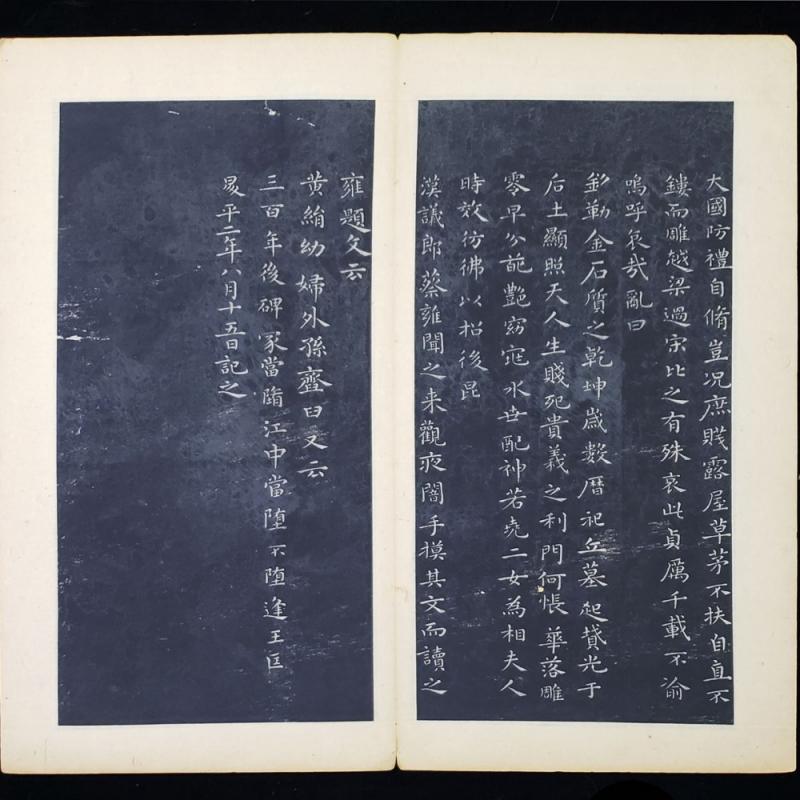 大國防禮自脩豈况庶賤露屋草茅不扶自直不
鏤而雕越梁過宋比之有殊哀此貞厲千載不渝
嗚呼哀哉亂曰
銘勒金石質之乾坤歲數曆祀丘墓起墳光于
后土顯照天人生賤死貴義之利門何悵華落雕
零早分葩艷窈窕永世配神若堯二女為相夫人
時效彷彿以招後昆
漢議郎蔡雍聞之来觀夜闇手摸其文而讀之
雍題文云
黃絹幼婦外孫齏臼又云
三百年後碑冢當隋江中當墮不墮逢王匡
昇平二年八月十五日記之